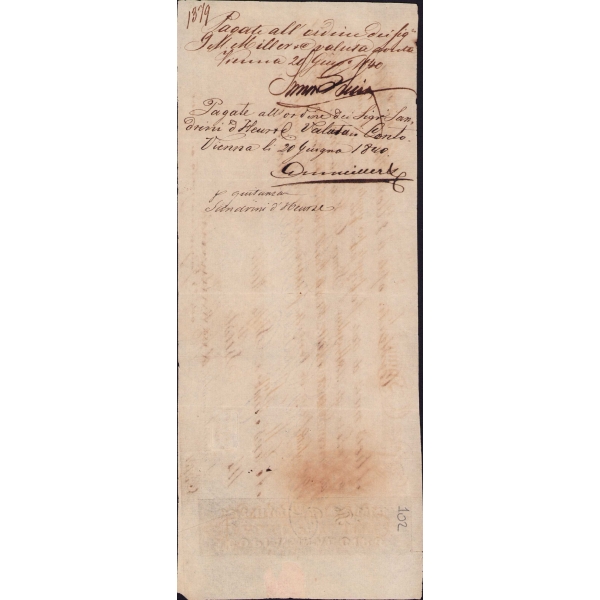 1879
Pagate all'ordine dei Sigri
J. M. Miller & C valuta
Vienna 20 Giugo 1840
Pagate all'ordine dei Sigri San
drini d'Heur & C Valuta in Conto.
Vienna li 20 Giugno 1840
p quitanza
Sandrini d'Heur & C
102